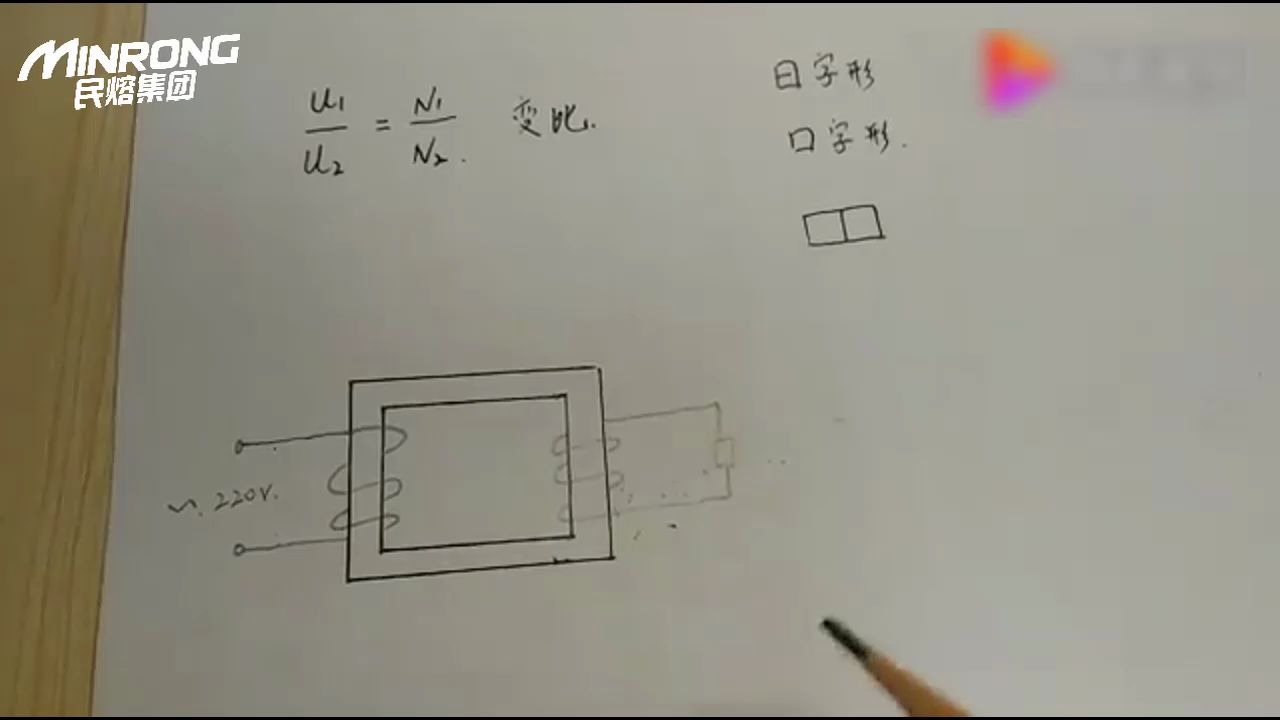 MINRONG
民熔集团
U1/U2 = N1/N2. 变比.
日字形
口字形.
~. 220V.